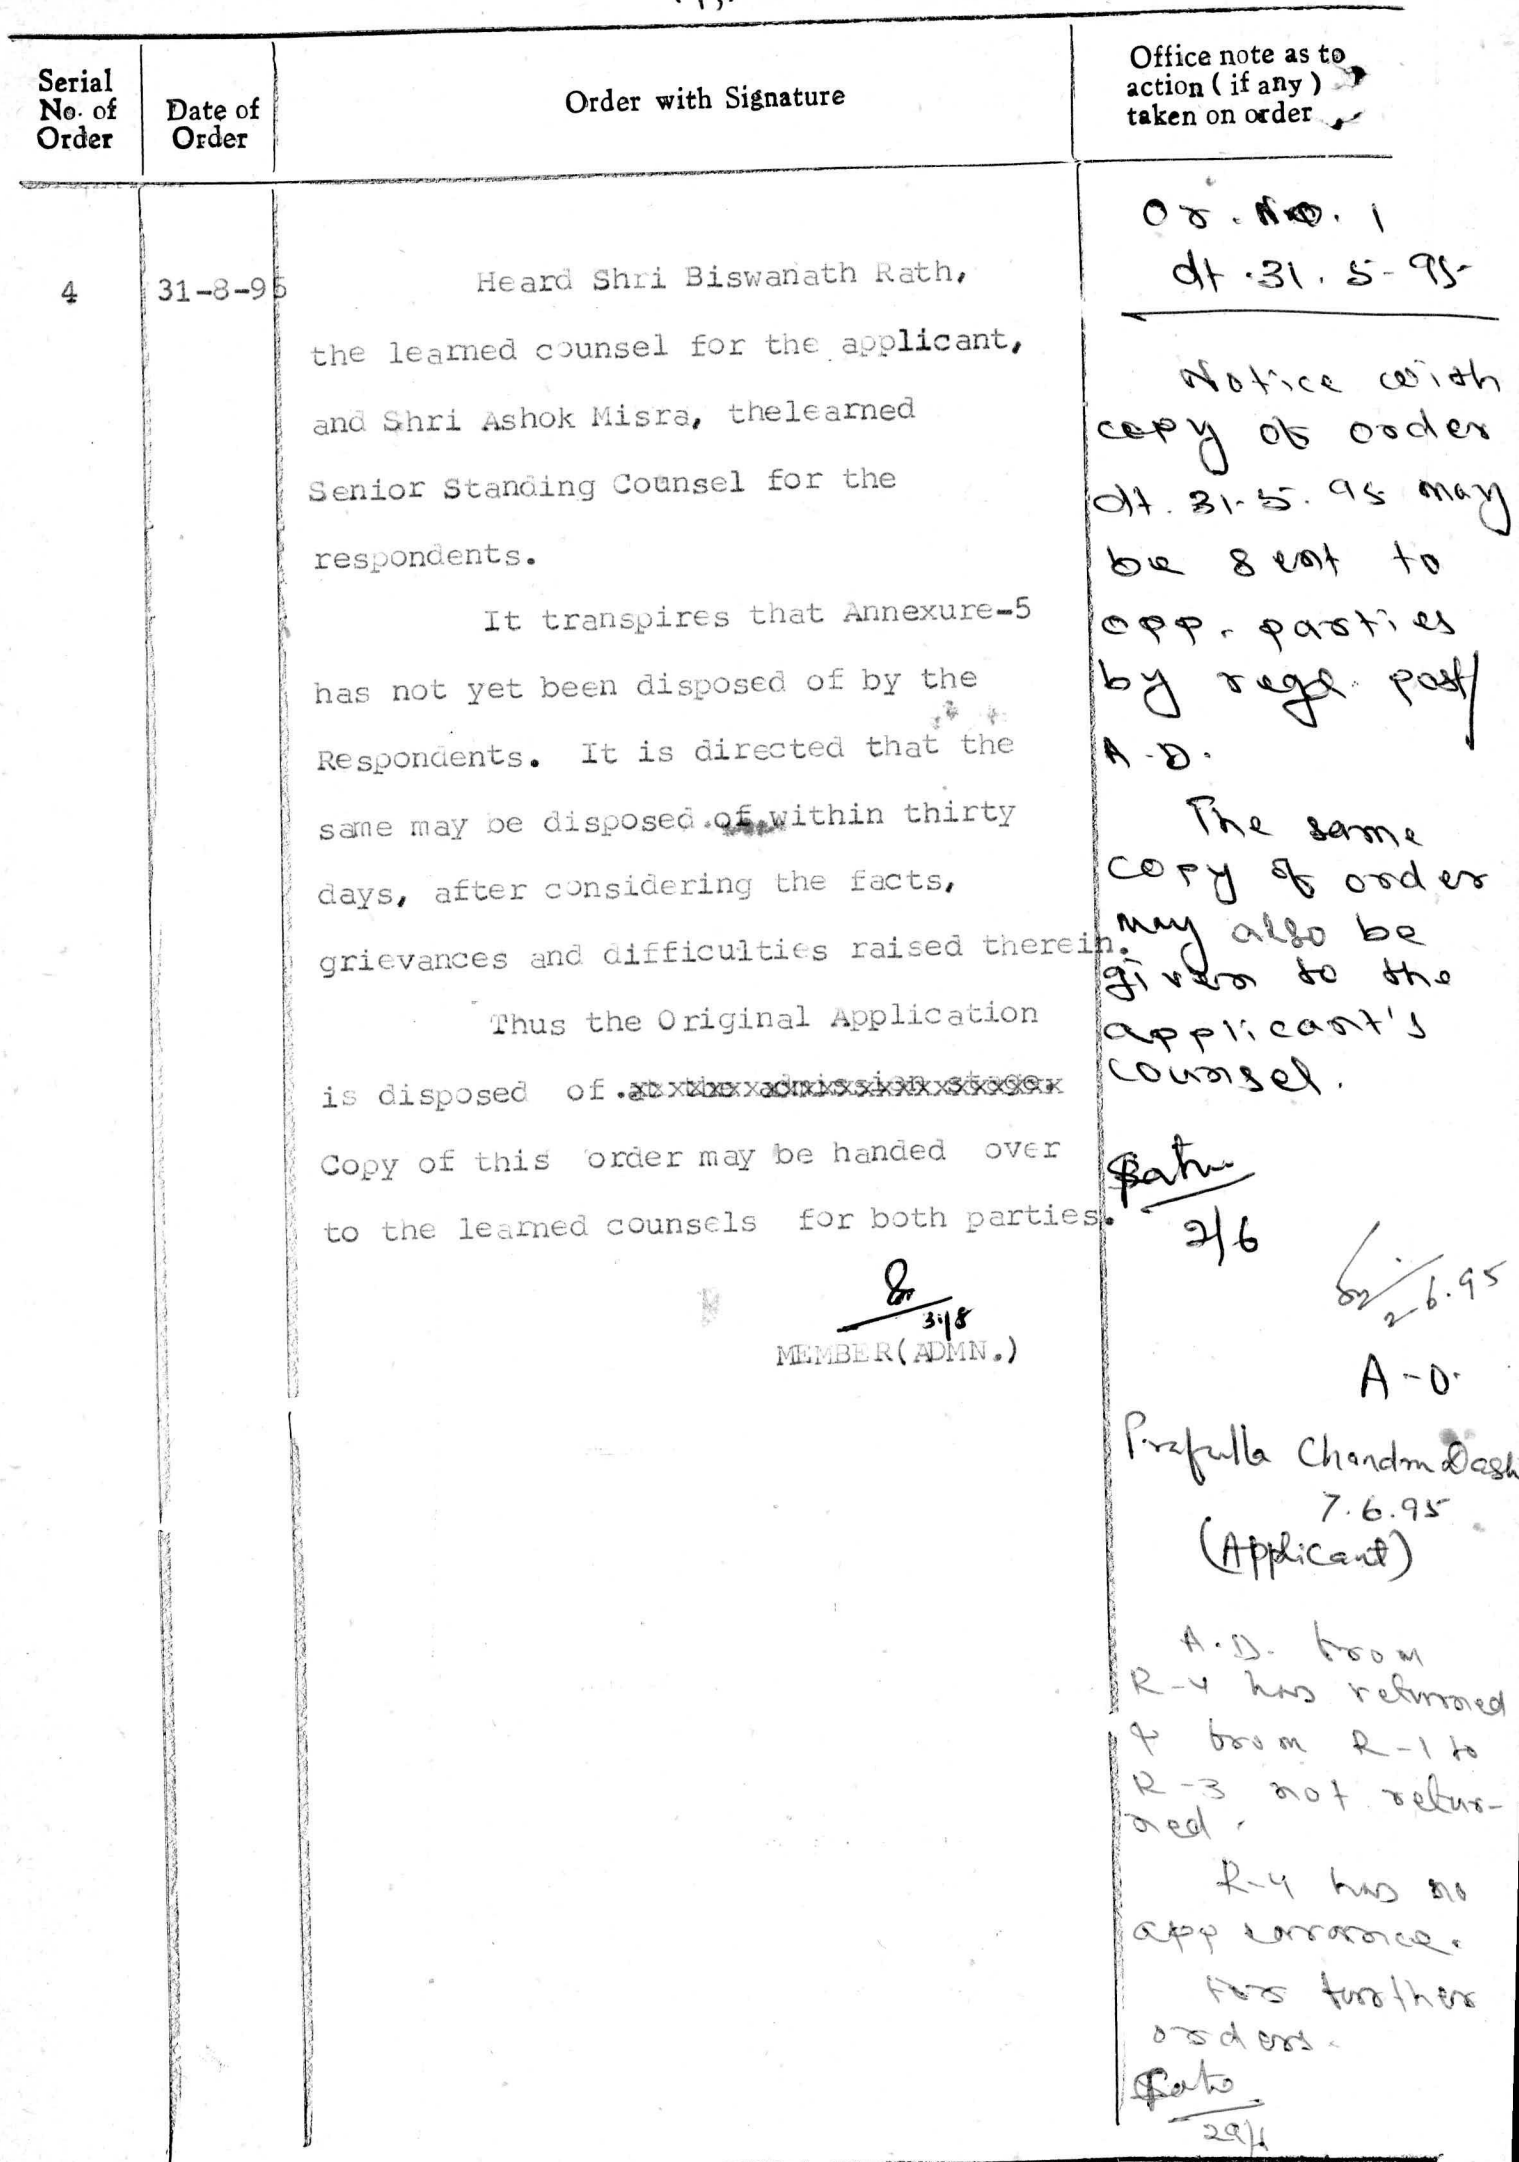 Serial
No. of
Order
Date of
Order
Order with Signature
Office note as to
action ( if any )
taken on order
4
31-8-95
Heard Shri Biswanath Rath,
the learned counsel for the applicant,
and Shri Ashok Misra, thelearned
Senior Standing Counsel for the
respondents.
It transpires that Annexure-5
has not yet been disposed of by the
Respondents. It is directed that the
same may be disposed of within thirty
days, after considering the facts,
grievances and difficulties raised therein.
Thus the Original Application
is disposed of. at the admission stage.
Copy of this order may be handed over
to the learned counsels for both parties.
31/8
MEMBER(ADMN.)
Or. No. 1
dt. 31.5-95
Notice with
copy of order
dt. 31-5.95 may
be sent to
opp. parties
by regd. post/
A.D.
The same
copy of order
may also be
given to the
applicant's
counsel.
2/6
2.6.95
A-D.
Prafulla Chandra Dash
7.6.95
(Applicant)
A.D. from
R-4 has returned
& from R-1 to
R-3 not retur-
ned.
R-4 has no
appearance.
For further
orders.